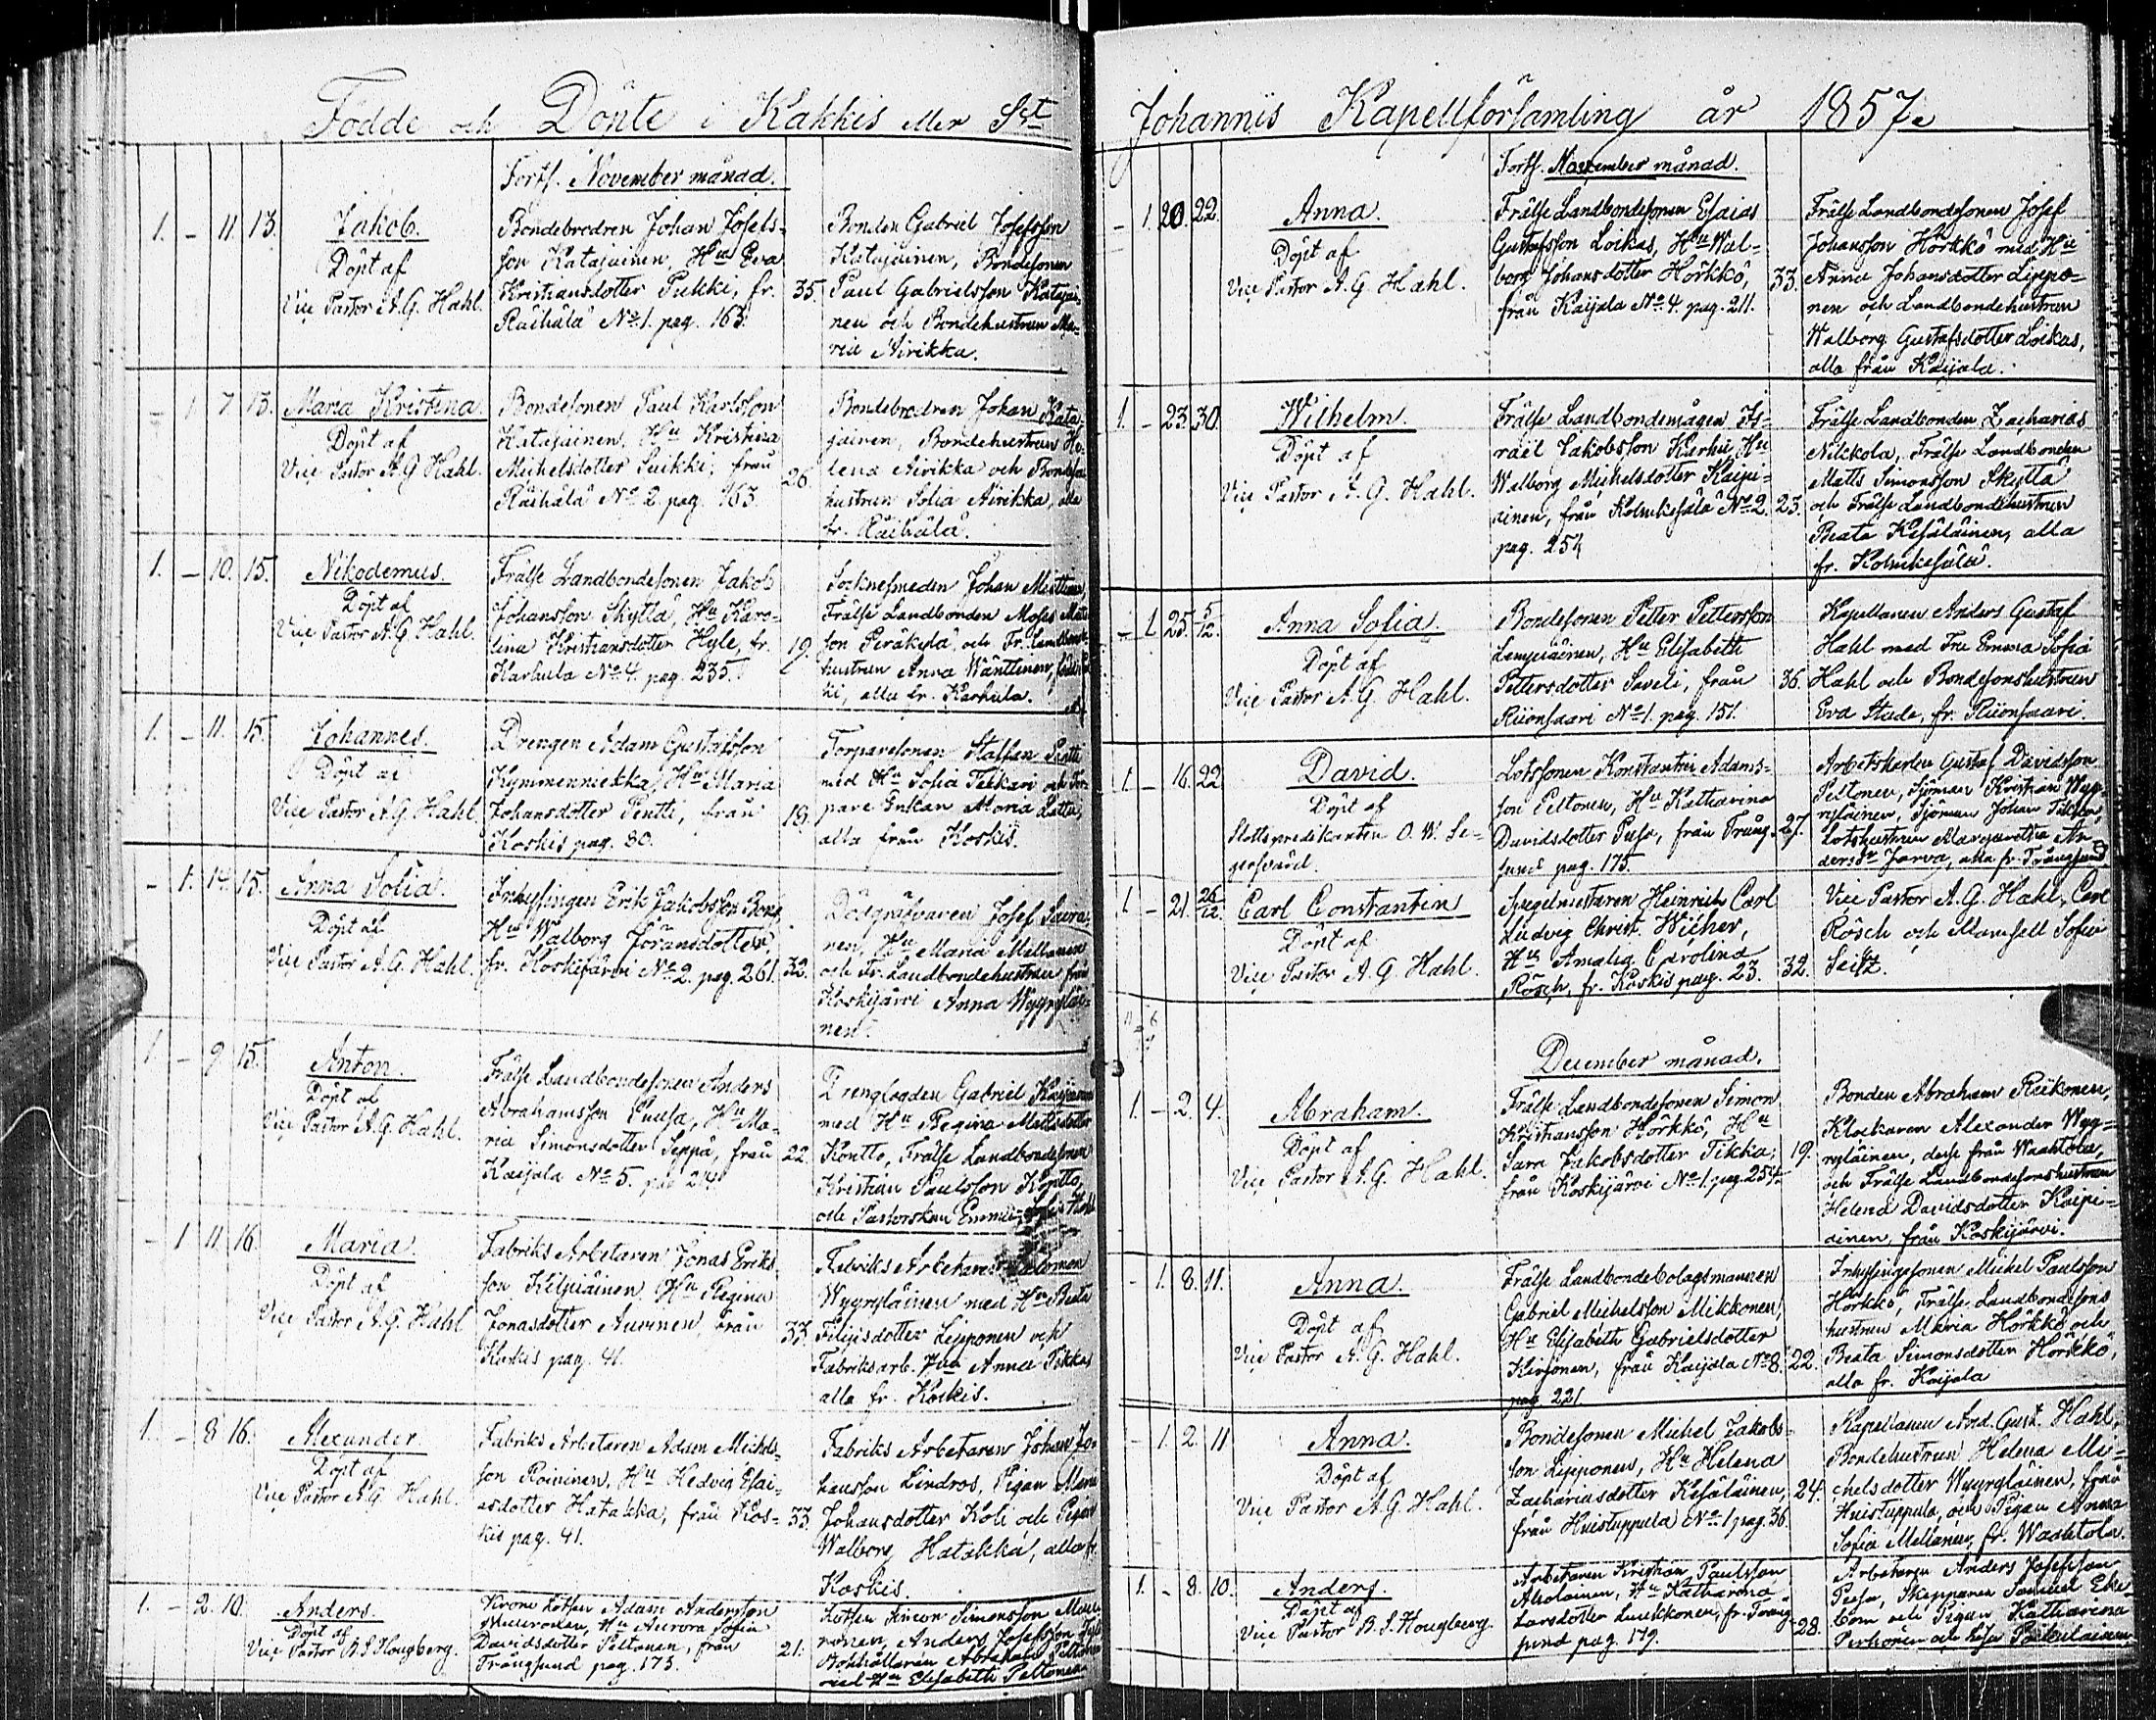 Födde och Döpte i Kakkis eller S:t
Fortſ. November månad.
1. - 11. 13. Jakob.
Döpt af
Vice Pastor A. G. Hahl.
Bondebrodren Johan Josefs-
son Katajainen, Hu Eva
Kristiansdotter Pukki, fr.
Räihälä No 1. pag. 163.
35.
Bonden Gabriel Josefsson
Katajainen, Bondesonen
Paul Gabrielsson Katajai-
nen och Bondehustrun Ma-
ria Airikka.
- 1. 7. 15. Maria Kristina.
Döpt af
Vice Pastor A. G. Hahl.
Bondesonen Paul Karlsson
Katajainen, Hu Kristina
Michelsdotter Suikki, från
Räihälä No 2. pag. 163.
26.
Bondebrodren Johan Kata-
jainen, Bondehustrun He-
lena Airikka och
hustrun Sofia Airikka, alla
fr. Räihälä.
1. - 10. 15. Nikodemus.
Döpt af
Vice Pastor A. G. Hahl.
Frälse Landbondesonen Jakob
Johansson Skyttä, Hu Karo-
lina Kristiansdotter Hyle, fr.
Karhula No 4. pag. 235.
19.
Socknesmeden Johan Miettinen
Frälse Landbonden Moses
son Peräkylä, och Fr.
hustrun Anna Wänttinen,
alla fr. Karhula.
1. - 11. 15. Johannes.
Döpt af
Vice Pastor A. G. Hahl.
Drengen Adam Gustafsson
Kymmenniekka, Hu Maria
Johansdotter Pentti, från
Koskis pag. 80.
18.
Torparesonen Staffan Pentti
med Hu Sofia Telkari och Tor-
pare Enkan Maria
alla från Koskis.
- 1. 14. 15. Anna Sofia.
Döpt af
Vice Pastor A. G. Hahl.
Inhysingen Erik Jakobsson
Hu Walborg Göransdotter
fr. Koskijärvi No 2. pag. 261.
32.
Dödgräfvaren Josef Saura-
nen, Hu Maria Mellanen
och Fr. Landbondehustrun från
Koskijärvi Anna Wyyryläi-
nen.
1. - 9. 15. Anton.
Döpt af
Vice Pastor A. G. Hahl.
Frälse Landbondesonen Anders
Abrahamsson Puusa, Hu Ma-
ria Simonsdotter Seppä, från
Kaijala No 5. pag 214.
22.
Drengfogden Gabriel
med Hu Regina Mattsdotter
Kontto, Frälse Landbondesonen
Kristian Paulsson Kontto,
och Pastorskan Emma Sofia Hahl
- 1. 11. 16. Maria.
Döpt af
Vice Pastor A. G. Hahl
Fabriks Arbetaren Jonas Eriks-
son Kilpiäinen, Hu Regina
Jonasdotter Auvinen, från
Koskis pag. 41.
33.
Fabriks Arbetaren Salomon
Wyyryläinen med Hu Beata
Filipsdotter Lipponen och
Fabriksarb. Hu Anna Tikka
alla fr. Koskis.
1. - 8. 16. Alexander.
Döpt af
Vice Pastor A. G. Hahl.
Fabriks Arbetaren Adam Michels-
son Roininen, Hu Hedvig Esai-
asdotter Hatakka, från Kos-
kis pag. 41.
33.
Fabriks Arbetaren Johan Jo-
hansson Lindroos, Pigan Maria
Johansdotter Koli och Pigan
Walborg Hatakka, alla fr.
Koskis.
1. - 2. 10. Anders.
Döpt af
Vice Pastor B. S. Hougberg.
Krono Lotsen Adam Andersson
Muuronen, Hu Aurora Sofia
Davidsdotter Peltonen, från
Trångsund pag. 173.
21.
Lotsen Simon Simonsson
Anders Josefsson
Bokhållaren Abraham Peltonen
med Hu Elisabeth Peltonen
Johannis Kapellförsamling år 1857.
Fortſ. November månad.
- 1. 20. 22. Anna.
Döpt af
Vice Pastor A. G. Hahl.
Frälse Landbondesonen Esaias
Gustafsson Loikas, Hu Wal-
borg Johansdotter Hörkkö,
från Kaijala No 4. pag. 211.
33.
Frälse Landbondesonen Josef
Johansson Hörkkö med Hu
Anna Johansdotter Lippo-
nen och Landbondehustrun
Walborg Gustafsdotter Loikas,
alla från Kaijala.
1. - 23. 30. Wilhelm.
Döpt af
Vice Pastor A. G. Hahl.
Frälse Landbondemågen Is-
raël Jakobsson Karhu, Hu
Walborg Michelsdotter Kaipi-
ainen, från Kolmikesälä No 2.
pag. 254
23.
Frälse Landbonden Zacharias
Nikkola, Frälse Landbonden
Matts Simonsson Skyttä
och Frälse Landbondehustrun
Beata Kesäläinen, alla
fr. Kolmikesälä.
- 1. 25. 5/12. Anna Sofia.
Döpt af
Vice Pastor A. G. Hahl.
Bondesonen Petter Pettersson
Lempiäinen, Hu Elisabeth
Pettersdotter Saveli, från
Riionsaari No 1. pag. 151.
36.
Kapellanen Anders Gustaf
Hahl med Fru Emma Sofia
Hahl och Bondesonshustrun
Eva Stude, fr. Riionsaari.
1. - 16. 22 David.
Döpt af
Slottspredikanten O. W. Le-
Lotssonen Konstantin Adams-
son Peltonen, Hu Katharina
Davidsdotter Puso, från Trång-
sund pag. 175.
27.
Arbetskarlen Gustaf Davidsson
Peltonen, Sjöman Kristian Wyy-
ryläinen, Sjöman Johan
Lotshustrun Margaretha An-
dersdr Jarva, alla fr. Trångsund
1. - 21. 26/12. Carl Constantin
Döpt af
Vice Pastor A. G. Hahl.
Spegelmästaren Heinrich Carl
Ludvig Christ. Wicher,
Hu Amalia Carolina
Rösch, fr. Koskis pag. 23.
32.
Vice Pastor A. G. Hahl, Carl
Rösch och Mamsell Sofia
Seitz.
December månad.
1. - 2. 4. Abraham.
Döpt af
Vice Pastor A. G. Hahl.
Frälse Landbondesonen Simon
Kristiansson Hörkkö, Hu
Sara Jakobsdotter Tikka,
från Koskijärvi No 1. pag. 257.
19.
Bonden Abraham Reikonen,
Klockaren Alexander Wyy-
ryläinen, desse från Waahtola,
och Frälse Landbondesonshustrun
Helena Davidsdotter Kaipi-
ainen, från Koskijärvi.
- 1. 8. 11. Anna.
Döpt af
Vice Pastor A. G. Hahl.
Frälse Landbondebolagsmannen
Gabriel Michelsson Mikkonen,
Hu Elisabeth Gabrielsdotter
Kirjonen, från Kaijala No 8.
pag. 221.
22.
Inhysingesonen Michel Paulsson
Hörkkö, Frälse Landbondesons
hustrun Maria Hörkkö och
Beata Simonsdotter Hörkkö,
alla fr. Kaijala
- 1. 2. 11 Anna.
Döpt af
Vice Pastor A. G. Hahl.
Bondesonen Michel Jakobs-
son Lipponen, Hu Helena
Zachariasdotter Kesäläinen,
från Huistuppula No 1 pag. 36.
24.
Kapellanen And. Gust. Hahl,
Bondehustrun Helena Mi-
chelsdotter Wyyryläinen, från
Huistuppula, och Pigan Anna
Sofia Mellanen, fr. Waahtola.
1. - 8. 10. Anders.
Döpt af
Vice Pastor B. S. Hougberg
Arbetaren Kristian Paulsson
Aholainen, Hu Katharina
Larsdotter Luukkonen, fr. Trång-
sund pag. 179.
28.
Arbetaren Anders Josefsson
Skepparen Samuel Eke-
bom och Pigan Katharina